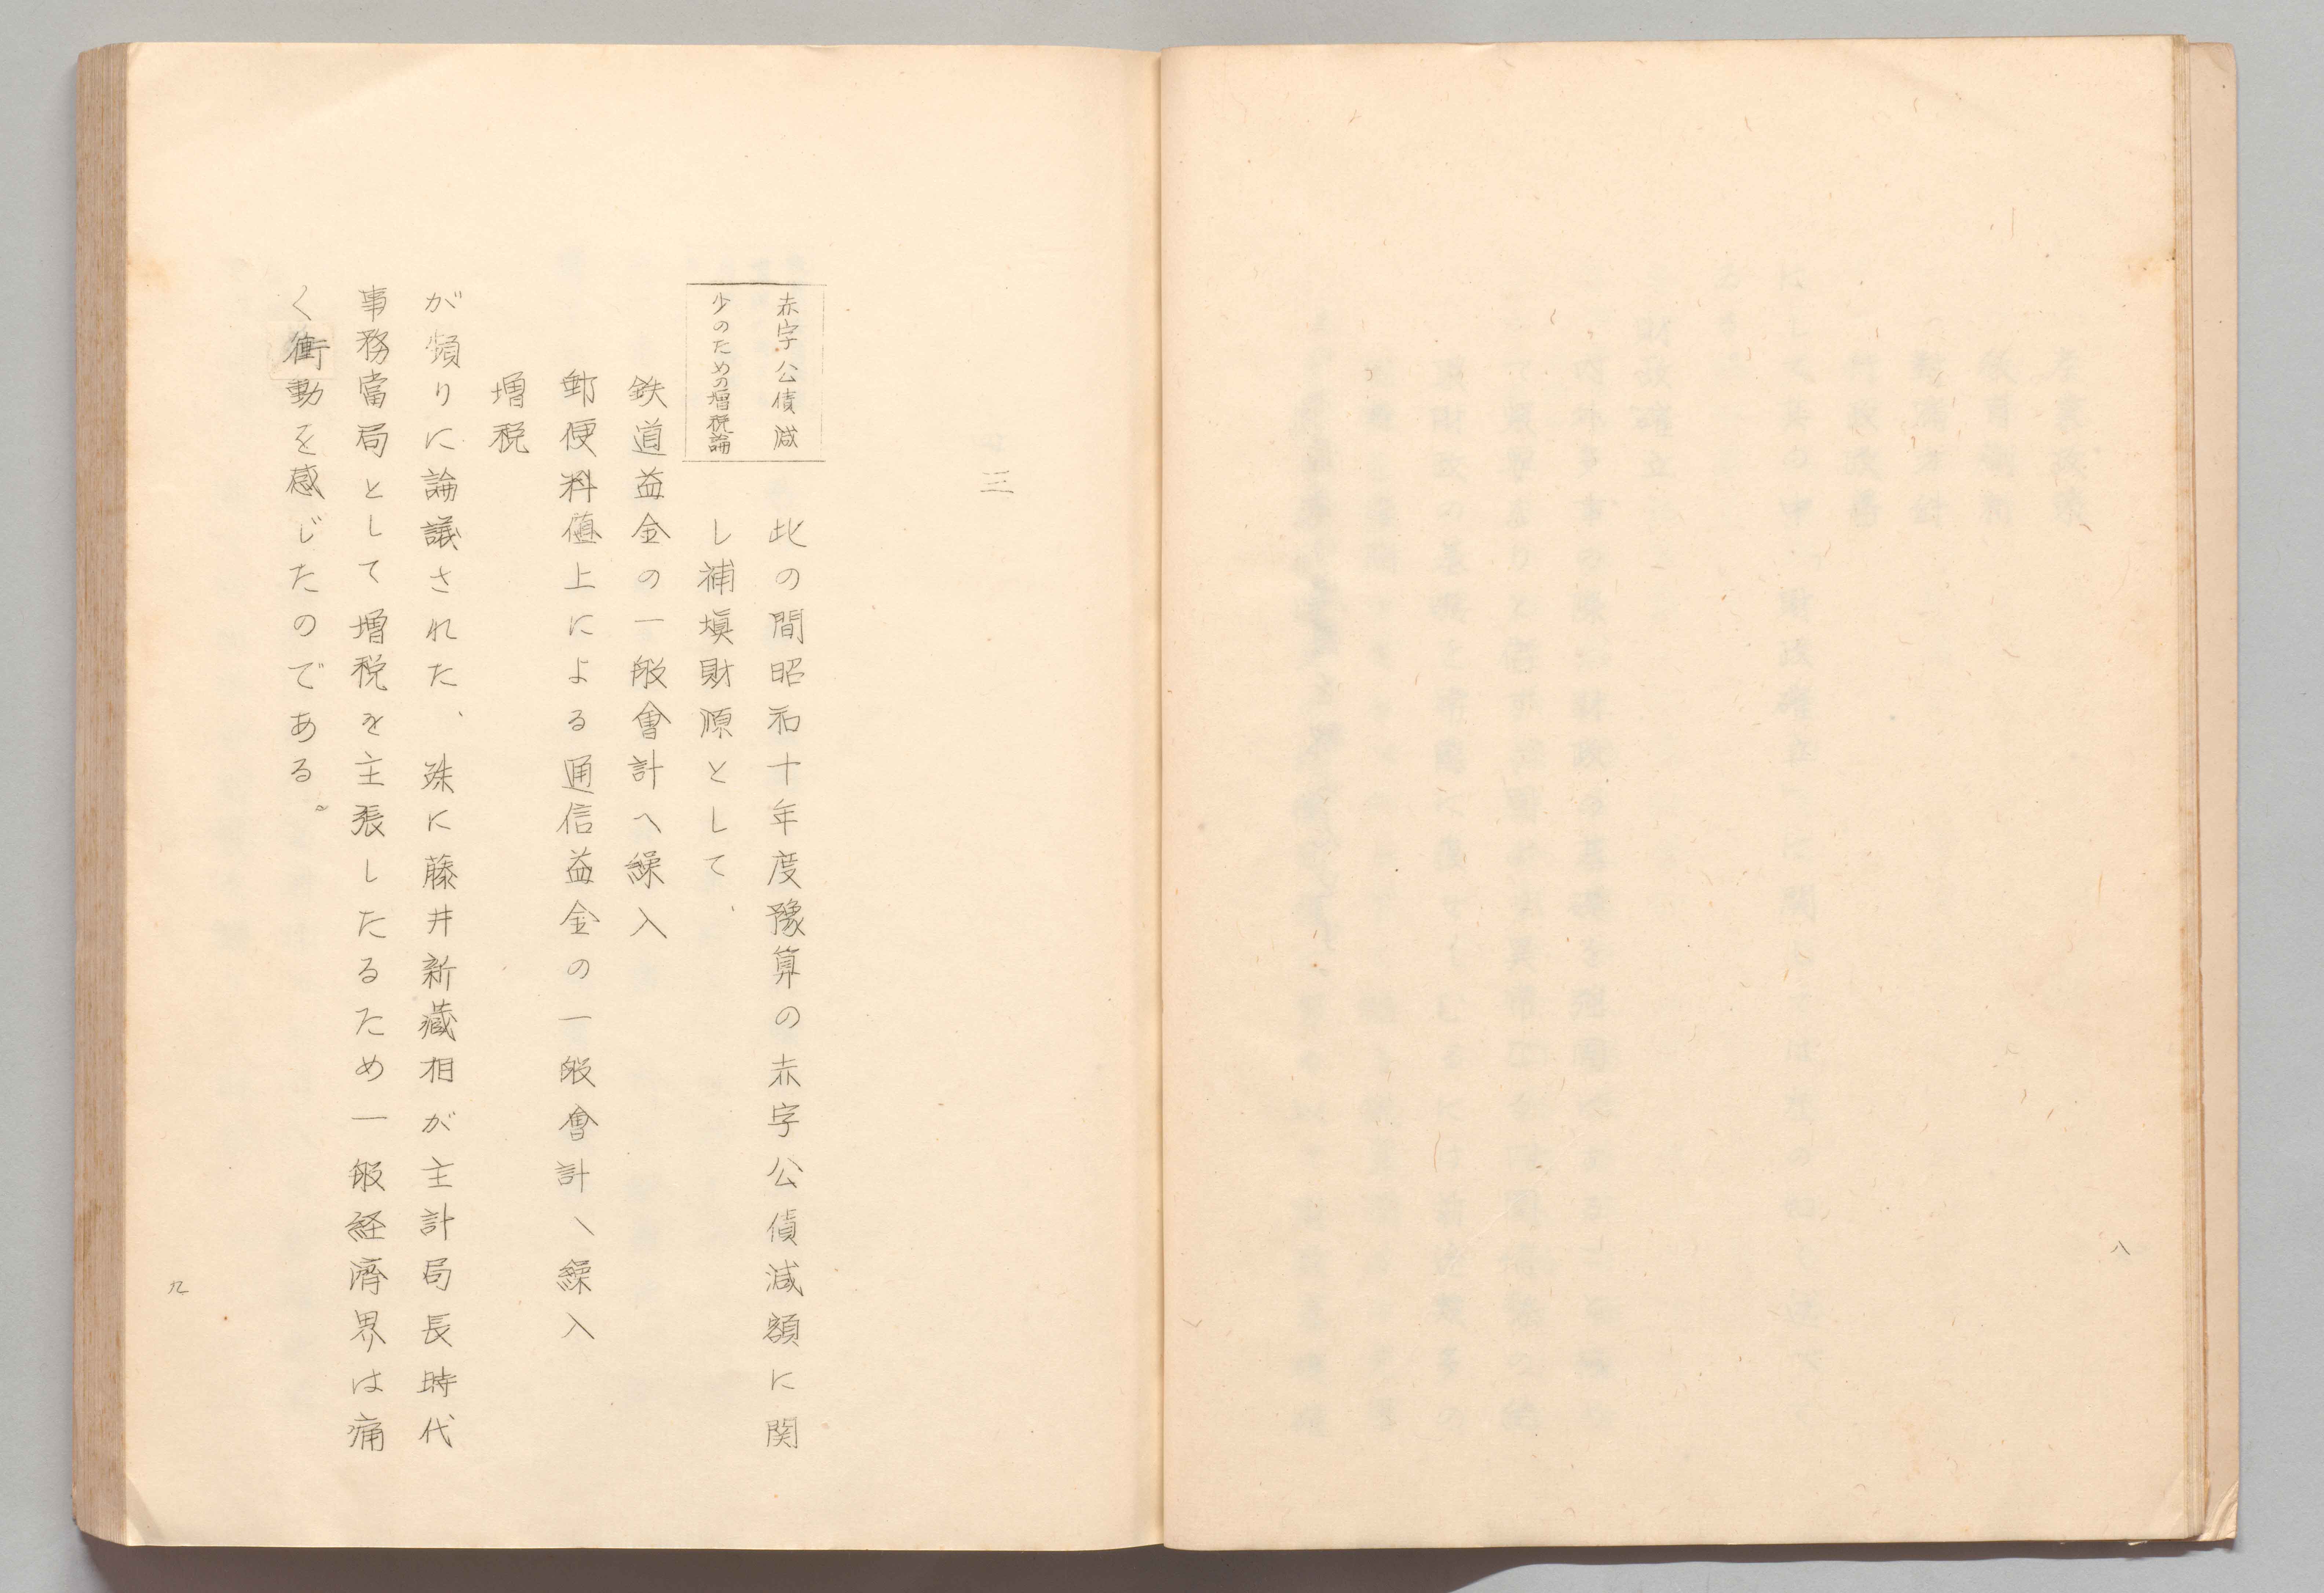 八
三
赤字公債減
少のための増税論
此の間昭和十年度豫算の赤字公債減額に関
し補塡財源として、
鉄道益金の一般會計へ繰入
郵便料値上による通信益金の一般會計へ繰入
増税
が頻りに論議された、殊に藤井新藏相が主計局長時代
事務當局として増税を主張したるため一般経済界は痛
く衝動を感じたのである。
九